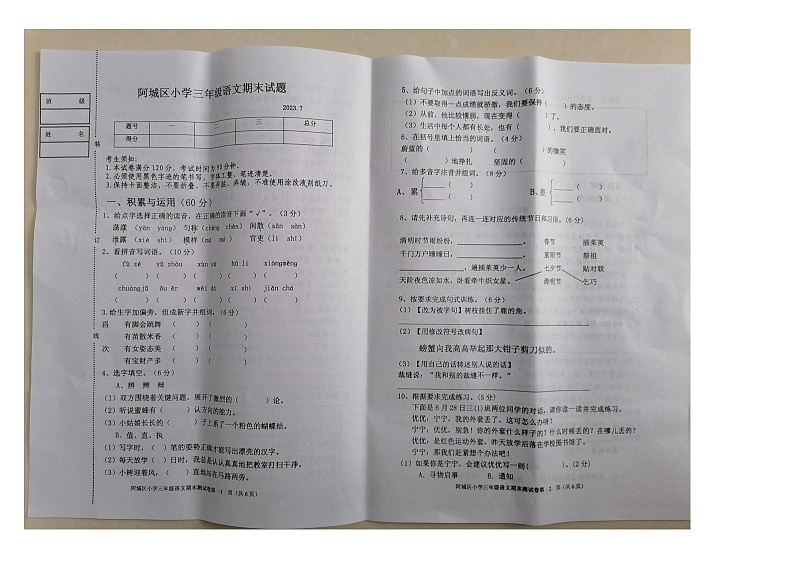 班 级
姓 名
装
订
线
阿城区小学三年级语文期末试题
2023.7
题号 一 二 三 总分
得分
考生须知：
1.本试卷满分120分，考试时间为90分钟。
2.必须使用黑色字迹的笔书写，字体工整，笔迹清楚。
3.保持卡面整洁，不要折叠、不要弄脏、弄皱，不准使用涂改液刮纸刀。
一、积累与运用（60分）
1、给点字选择正确的读音，在正确的读音下画“√”。（3分）
荡漾（yàn yàng） 匀称（chèng chèn） 闲散（sǎn sàn）
泄露（xiè shì） 模样（mú mó） 官吏（lì shǐ）
2、看拼音写词语。（10分）
fù zé yǔ zhòu xùn sù hú li xiōngměng
（ ）（ ）（ ）（ ）（ ）
chuāngjǔ ōu ěr wēi dà zī shì jiǎn chá
（ ）（ ）（ ）（ ）（ ）
3.给生字加偏旁，组成新字并组词。（6分）
有脚会跳舞（ ）（ ）
有苗散米香（ ）（ ）
次 有女姿态美（ ）（ ）
有宝财产多（ ）（ ）
4、选字填空。（6分）
A、辨 辫 辩
（1）双方围绕着关键问题，展开了激烈的（ ）论。
（2）听说蜜蜂有（ ）认方向的能力。
（3）小姑娘长长的（ ）子上系了一个粉色的蝴蝶结。
B、值、直、执
（1）写字时，（ ）笔的姿势正确才能写出漂亮的汉字。
（2）每天放学（ ）日时，我总是认认真真地把教室打扫干净。
（3）小树迎着风，（ ）直地站在马路两旁。
阿城区小学三年级语文期末测试卷第 1 页（共6页）
5、给句子中加点的词语写出反义词。（6分）
（1）不要取得一点成绩就骄傲，我们要保持（ ）的态度。
（2）从前，他比较懦弱，现在变得（ ）了。
（3）生活中每个人都有长处，也有（ ），我们要正确面对。
6、在括号里填上恰当的词语。（4分）
蔚蓝的（ ） （ ）的微笑
（ ）地挣扎 坚固的（ ）
7、给多音字注音并组词。（8分）
A、累 （ ） B、差 （ ）
（ ） （ ）
8、请先补充诗句，再连一连对应的传统节日和习俗。（6分）
清明时节雨纷纷， 。 春节 插茱萸
千门万户曈曈日， 。 重阳节 祭祖
，遍插茱萸少一人。 七夕节 贴对联
天阶夜色凉如水，卧看牵牛织女星。 清明节 乞巧
9、按要求完成句式训练。（6分）
（1）【改为被字句】树枝挂住了鹿的角。
（2）【用修改符号改病句】
螃蟹向我高高举起那大钳子剪刀似的。
（3）【用自己的话转述别人说的话】
裁缝说：“我和别的裁缝不一样。”
10、根据要求完成练习。（5分）
下面是6月28日三(1)班两位同学的对话，请你读一读并完成练习。
优优：宁宁，我的外套丢了，这可怎么办呀？
宁宁：优优，别急！你的外套什么样子的？什么时候丢的？在哪儿丢的？
优优：是红色运动外套，昨天放学后落在学校图书馆了。
宁宁：那我们赶紧想个办法吧！
（1）如果你是宁宁，会建议优优写一则（ ）。（2分）
A．寻物启事 B．通知
阿城区小学三年级语文期末测试卷第 2 页（共6页）